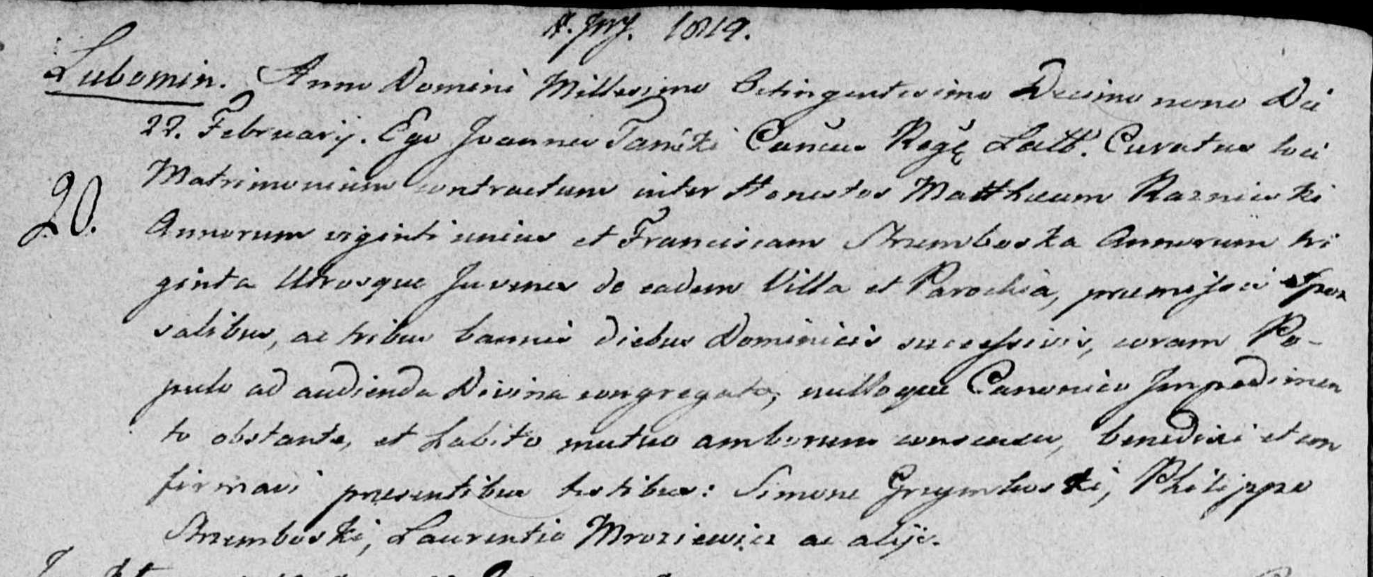 1819.
Lubomin. Anno Domini Millesimo Octingentesimo Decimo nono Die
22. Februarij. Ego Joannes Tański Canćus Regę Latt. Curatus loci
20. Matrimonium contractum inter Honestos Matthæum Kazniewski
Annorum viginti unius et Franciscam Strzemboska Annorum tri
ginta Utrosque Juvenes de eadem Villa et Parochia, præmissis spon
salibus, ac tribus bannis diebus Dominicis successivis, coram Po-
pulo ad audienda Divina congregato, nulloque Canonico Impedimen
to obstante, et habito mutuo amborum consensu, benedixi et con
firmavi presentibus testibus: Simone Grzymboski, Philippo
Strzemboski, Laurentio Mroziewicz ac alijs.